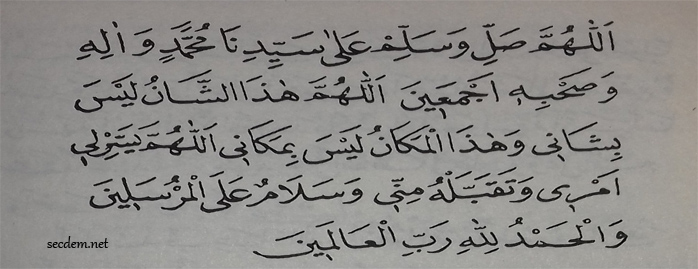 اَللّٰهُمَّ صَلِّ وَسَلِّمْ عَلٰى سَيِّدِنَا مُحَمَّدٍ وَاٰلِهِ
وَصَحْبِهِ اَجْمَعِينَ اَللّٰهُمَّ هٰذَا الشَّانُ لَيْسَ
بِشَانِى وَهٰذَا الْمَكَانُ لَيْسَ بِمَكَانِى اَللّٰهُمَّ يَسِّرْلِى
اَمْرِى وَتَقَبَّلْهُ مِنِّى وَسَلَامٌ عَلَى الْمُرْسَلِينَ
وَالْحَمْدُ لِلّٰهِ رَبِّ الْعَالَمِينَ
secdem.net